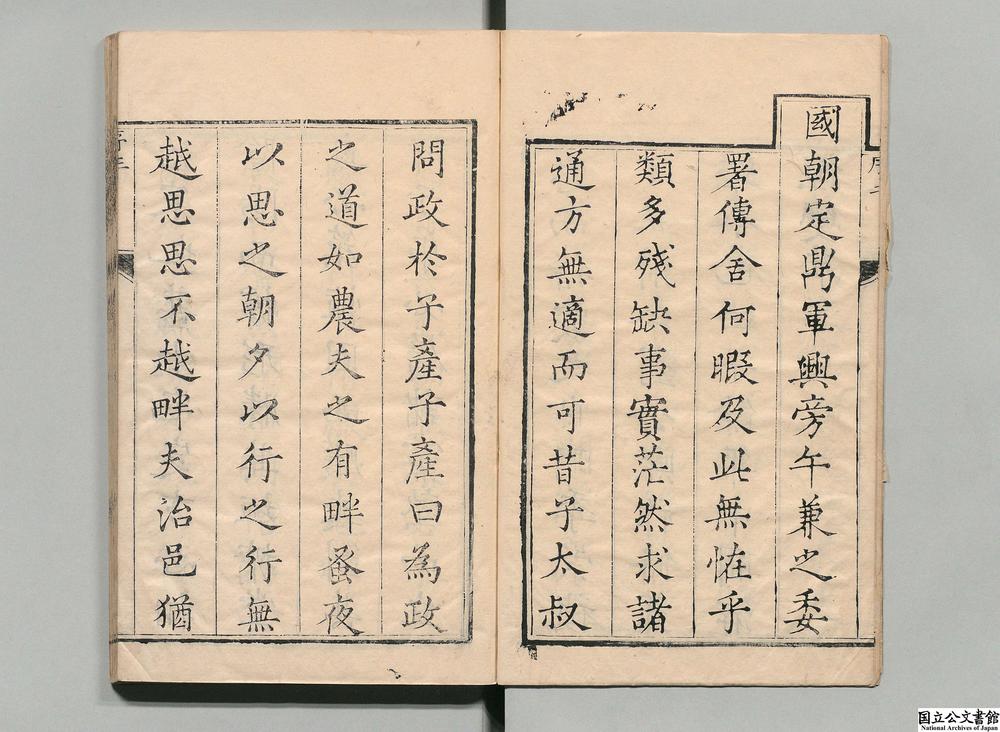 國朝定鼎軍興旁午兼之委
署傳舍何暇及此無怪乎
類多殘缺事實茫然求諸
通方無適而可昔子太叔
問政於子產子產曰為政
之道如農夫之有畔蚤夜
以思之朝夕以行之行無
越思思不越畔夫治邑猶
国立公文書館
National Archives of Japan